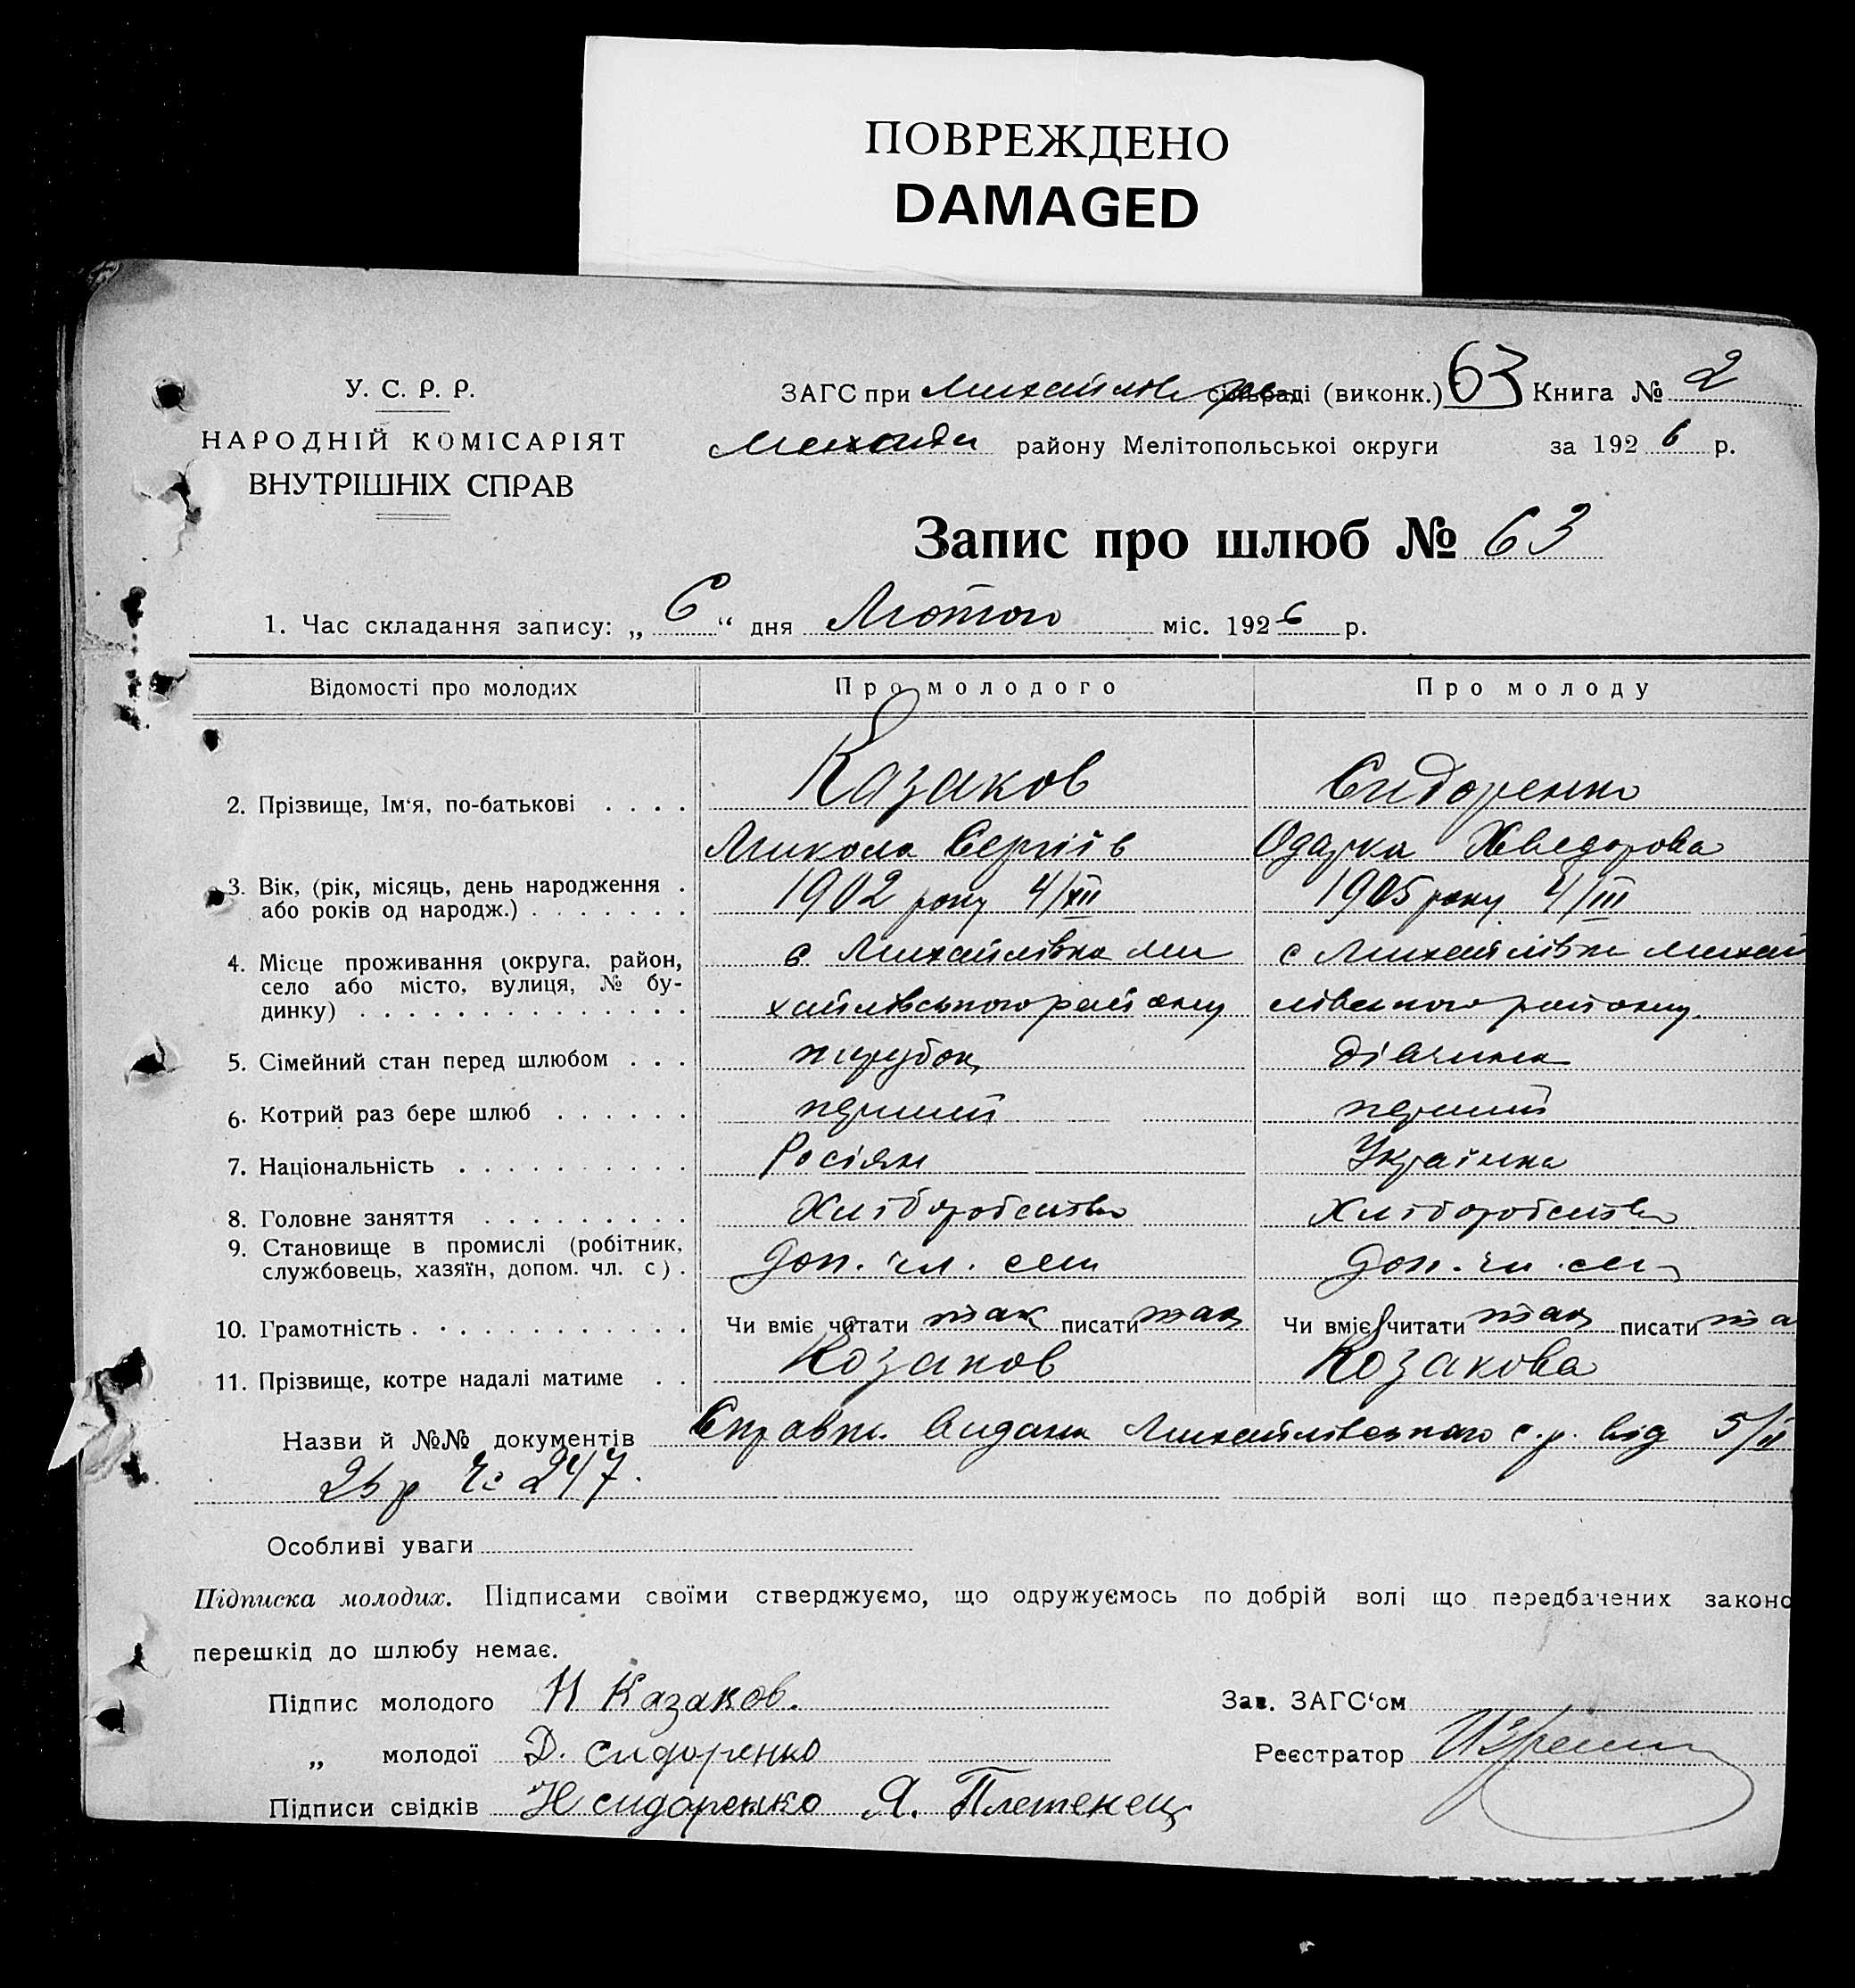 ПОВРЕЖДЕНО
DAMAGED
У. С. Р. Р.
НАРОДНІЙ КОМІСАРІЯТ
ВНУТРІШНІХ СПРАВ
ЗАГС при Михайлов сільраді (виконк.) 63 Книга № 2
району Мелітопольської округи за 1926 р.
Запис про шлюб № 63
1. Час складання запису: „6“ дня Лютого міс. 1926 р.
Відомості про молодих Про молодого Про молоду
2. Прізвище, Ім'я, по-батькові . . . . Казаков Сидоренко
Микола Сергіїв Одарка Хведорова
3. Вік, (рік, місяць, день народження . 1902 року 4/XII 1905 року 4/III
або років од народж.) . . . . . . .
4. Місце проживання (округа, район, с Михайлівка Ми с Михайлівка Михай
село або місто, вулиця, № бу-
динку) . . . . . . . . . . . . . . хайлівського району лівського району.
5. Сімейний стан перед шлюбом . . . парубок дівчина
6. Котрий раз бере шлюб . . . . . . перший перший
7. Національність . . . . . . . . . . Росіян Українка
8. Головне заняття . . . . . . . . . Хліборобство Хліборобство
9. Становище в промислі (робітник,
службовець, хазяїн, допом. чл. с) . Доп. чл. сем Доп. чл. сем
10. Грамотність . . . . . . . . . . . . Чи вміє читати так писати так Чи вміє читати так писати та
11. Прізвище, котре надалі матиме . . Козаков Козакова
Назви й №№ документів Справк. видана Михайлівського с.р. від 5/II
26 р Чс 247.
Особливі уваги
Підписка молодих. Підписами своїми стверджуємо, що одружуємось по добрій волі що передбачених законо
перешкід до шлюбу немає.
Підпис молодого Н Казаков. Зав. ЗАГС'ом
„ молодої Д. Сидоренко Реєстратор
Підписи свідків Н сидоренко Я. Плетенець